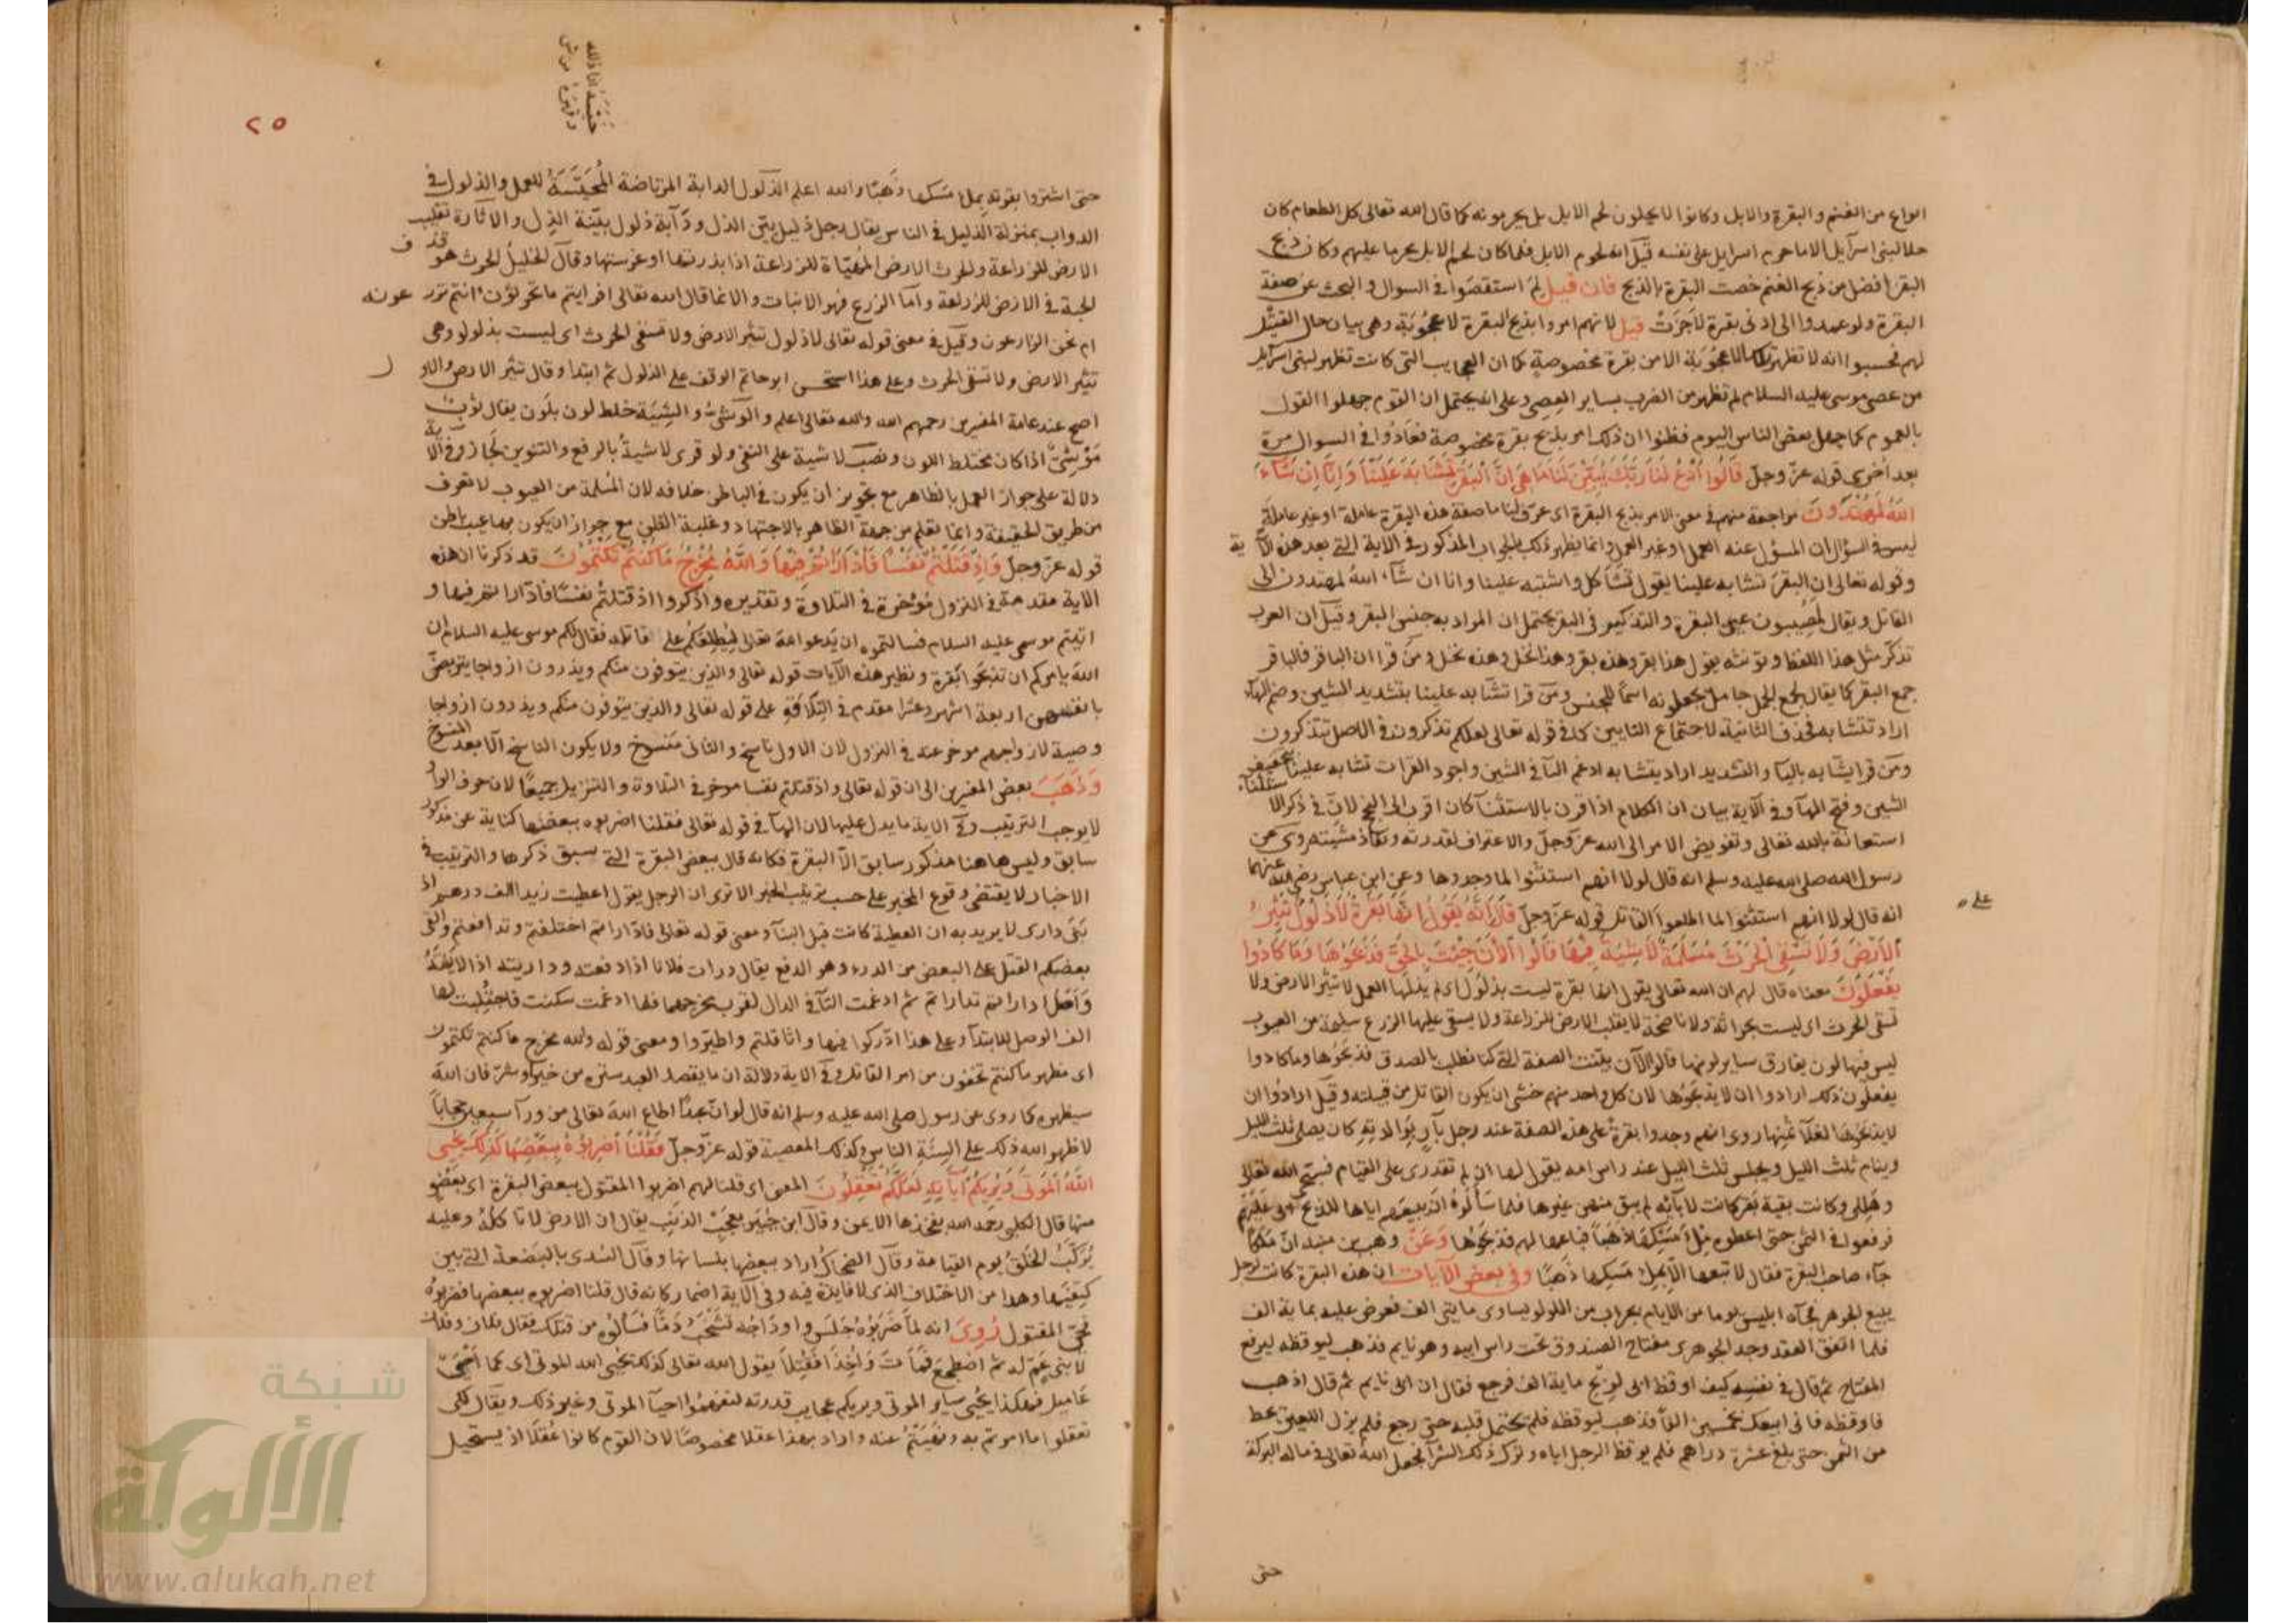 انواع من الغنم والبقرة والابل وكانوا لا يحلون لحم الابل بل يحرمونه كما قال الله تعالى كل الطعام كان
حلا لبنى اسرآيل الا ما حرم اسرايل على نفسه قيل انه لحوم الابل فلما كان لحم الابل يحرما عليهم وكان ذبح
البقر افضل من ذبح الغنم خصت البقرة بالذبح فان قيل لم استقصوا فى السوال والبحث عن صفة
البقرة ولو عمدوا الى ادنى بقرة لاجزت قيل لانهم امروا بذبح البقرة لاعجوبة وهى بيان حال القتيل
لهم فحسبوا انه لا تظهر تلك الاعجوبة الا من بقرة مخصوصة كما ان العجايب التى كانت تظهر لبنى اسرآيل
من عصى موسى عليه السلام لم تظهر من الضرب بساير العصى وعلى انه يحتمل ان القوم جهلوا القول
بالعموم كما جهل بعض الناس اليوم فظنوا ان ذلك امر بذبح بقرة مخصوصة فعادوا فى السوال مرة
بعد اخرى قوله عز وجل قَالُوا ادْعُ لَنَا رَبَّكَ يُبَيِّنْ لَنَا مَا هِىَ اِنَّ الْبَقَرَ تَشَابَهَ عَلَيْنَا وَاِنَّا اِنْ شَآءَ
اللهُ لَمُهْتَدُونَ مراجعة منهم فى معنى الامر بذبح البقرة اى عرف لنا ما صفة هذه البقرة عاملة او غير عاملة
ليس فى السؤال ان المسؤل عنه العمل او غير العمل وانما يظهر ذلك بالجواب المذكور فى الاية التى بعد هذه الآية
وقوله تعالى ان البقر تشابه علينا يقول تشاكل واشتبه علينا وانا ان شآء الله لمهتدون الى
القاتل ويقال لمصيبون عين البقرة والتذكير فى البقر يحتمل ان المراد به جنس البقر وقيل ان العرب
تذكر مثل هذا اللفظ وتؤنثه يقول هذا بقر وهذه بقر وهذا نخل وهذه نخل ومن قرا ان الباقر فالباقر
جمع البقر كما يقال لجمع الجمل جامل يجعلونه اسما للجنس ومن قرا تشّابه علينا بتشديد الشين وضم الهآء
اراد تتشابه فحذف الثانية لاجتماع التايين كما فى قوله تعالى لعلكم تذكرون فى الاصل تتذكرون
ومن قرا يشّابه باليآ والتشديد اراد يتشابه ادغم التآ فى الشين واجود القرات تشابه علينا بتخفيف
الشين وفتح الهآ وفى الآية بيان ان الكلام اذا قرن بالاستثنآ كان اقرب الى النجح لان فى ذكر الاستثنآء
استعانة بالله تعالى وتفويض الامر الى الله عز وجل والاعتراف لقدرته ونفاذ مشيئته روى عن
رسول الله صلى الله عليه وسلم انه قال لولا انهم استثنوا لما وجدوها وعن ابن عباس رضى الله عنهما
على
انه قال لولا انهم استثنوا لما اطلعوا القاتل قوله عز وجل قَالَ اِنَّهُ يَقُولُ اِنَّهَا بَقَرَةٌ لَا ذَلُولٌ تُثِيرُ
الْاَرْضَ وَلَا تَسْقِى الْحَرْثَ مُسَلَّمَةٌ لَا شِيَةَ فِيهَا قَالُوا الْاٰنَ جِئْتَ بِالْحَقِّ فَذَبَحُوهَا وَمَا كَادُوا
يَفْعَلُونَ معناه قال لهم ان الله تعالى يقول انها بقرة ليست بذلول اى لم يذلها العمل لا تثير الارض ولا
تسقى الحرث اى ليست بحراثة ولا ناضحة لا يقلب الارض للزراعة ولا يسقى عليها الزرع سليمة من العيوب
ليس فيها لون يفارق ساير لونها قالوا الآن بينت الصفة التى كنا نطلب بالصدق فذبحوها وما كادوا
يفعلون ذلك ارادوا ان لا يذبحوها لان كل واحد منهم خشى ان يكون القاتل من قبيلته وقيل ارادوا ان
لا يذبحوها لغلآ ثمنها روى انهم وجدوا بقرة على هذه الصفة عند رجل بآر بوالديه كان يصلى ثلث الليل
وينام ثلث الليل ويجلس ثلث الليل عند راس امه يقول لها ان لم تقدرى على القيام فسبحى الله تعالى
وهللى وكانت بقية بقر كانت لابآئه لم يبق منهن غيرها فلما سألوه ان يبيعهم اياها للذبح ابى عليهم
فرفعوا فى الثمن حتى اعطوه ملأ مسكها ذهبا فباعها لهم فذبحوها وَعَنْ وهب بن منبه ان ملكا
جآء صاحب البقرة فقال لا تبعها الا بملأ مسكها ذهبا وفى بعض الايات ان هذه البقرة كانت لرجل
يبيع الجوهر فجآه ابليس يوما من الايام بجراب من اللولو يساوى مايتى الف فعرض عليه بماية الف
فلما اتفق العقد وجد الجوهرى مفتاح الصندوق تحت راس ابيه وهو نايم فذهب ليوقظه ليرفع
المفتاح ثم قال فى نفسه كيف اوقظ ابى لربح ماية الف فرجع فقال ان ابى نايم ثم قال اذهب
فاوقظه فانى ابيعك بخمسين الفا فذهب ليوقظه فلم يحتمل قلبه حتى رجع فلم يزل اللعين يحط
من الثمن حتى بلغ عشرة دراهم فلم يوقظ الرجل اباه وترك ذلك الشرآ فجعل الله تعالى فى ماله البركة
حتى
٢٥
حتى اشتروا بقرته بملء مسكها ذهبا والله اعلم الذلول الدابة المرتاضة للعمل والذلول فى
الدواب بمنزلة الذليل فى الناس يقال رجل ذليل بيّن الذل ودآبة ذلول بيّنة الذل والاثارة تقليب
الارض للزراعة والحرث الارض المهيّاة للزراعة اذا بذرتها او غرستها وقال الخليل الحرث هو قذف
الحبة فى الارض للزراعة وامآ الزرع فهو الانبات والانما قال الله تعالى افرايتم ما تحرثون انتم تزرعونه
ام نحن الزارعون وقيل فى معنى قوله تعالى لا ذلول تثير الارض ولا تسقى الحرث اى ليست بذلول وهى
تثير الارض ولا تسقى الحرث وعلى هذا استحسن ابو حاتم الوقف على الذلول ثم ابتدا وقال تثير الارض والاول
اصح عند عامة المفسرين رحمهم الله والله تعالى اعلم والوشى والشية خلط لون بلون يقال ثوب
موشىّ اذا كان مختلط اللون ونصب لا شية على النفى ولو قرى لا شيةٌ بالرفع والتنوين لجاز وفى الآية
دلالة على جواز العمل بالظاهر مع تجويز ان يكون فى الباطن خلافه لان المسلمة من العيوب لا تعرف
من طريق الحقيقة وانما تعلم من جهة الظاهر بالاجتهاد وغلبة الظن مع جواز ان يكون بها عيب باطن
قوله عز وجل وَاِذْ قَتَلْتُمْ نَفْسًا فَادّٰارَأْتُمْ فِيهَا وَاللهُ مُخْرِجٌ مَا كُنْتُمْ تَكْتُمُونَ قد ذكرنا ان هذه
الاية مقدمة فى النزول مؤخرة فى التلاوة وتقديره واذكروا اذ قتلتم نفسا فادّاراتم فيها و
اتيتم موسى عليه السلام فسالتموه ان يدعوا الله تعالى ليطلعكم على قاتله فقال لكم موسى عليه السلام ان
الله يامركم ان تذبحوا بقرة ونظير هذه الآيات قوله تعالى والذين يتوفون منكم ويذرون ازواجا يتربصن
بانفسهن اربعة اشهر وعشرا مقدم فى التلاوة على قوله تعالى والذين يتوفون منكم ويذرون ازواجا
وصية لازواجهم موخر عنه فى النزول لان الاول ناسخ والثانى منسوخ ولا يكون الناسخ الا بعد المنسوخ
وَذَهَبَ بعض المفسرين الى ان قوله تعالى واذ قتلتم نفسا موخر فى التلاوة والتنزيل جميعًا لان حرف الواو
لا يوجب الترتيب وفى الاية ما يدل عليها لان الهآ فى قوله تعالى فقلنا اضربوه ببعضها كناية عن مذكور
سابق وليس هاهنا مذكور سابق الا البقرة فكانه قال ببعض البقرة التى سبق ذكرها والترتيب فى
الاخبار لا يقتضى وقوع المخبر على حسب ترتيب الخبر الا ترى ان الرجل يقول اعطيت زيدا الف درهم اذ
بنى دارى لا يريد به ان العطية كانت قبل البنآ ومعنى قوله تعالى فادّاراتم اختلفتم وتدافعتم والقى
بعضكم القتل على البعض من الدرء وهو الدفع يقال درات فلانا اذا دفعته وداريته اذا لاينته
وَاَصْل ادّاراتم تداراتم ثم ادغمت التآ فى الدال لقرب مخرجهما فلما ادغمت سكنت فاجتلبت لها
الف الوصل للابتدآ وعلى هذا ادّركوا فيها واثّاقلتم واطّيروا ومعنى قوله والله مخرج ما كنتم تكتمون
اى مظهر ما كنتم تخفون من امر القاتل وفى الاية دلالة ان ما يقصد العبد ستره من خير او شر فان الله
سيظهره كما روى عن رسول صلى الله عليه وسلم انه قال لو ان عبدا اطاع الله تعالى من ورآ سبعين حجاباً
لاظهر الله ذلك على السنة الناس وكذلك المعصية قوله عز وجل فَقُلْنَا اضْرِبُوهُ بِبَعْضِهَا كَذٰلِكَ يُحْيِى
اللهُ الْمَوْتٰى وَيُرِيكُمْ اٰيَاتِهِ لَعَلَّكُمْ تَعْقِلُونَ المعنى اى قلنا لهم اضربوا المقتول ببعض البقرة اى بعضو
منها قال الكلبى رحمه الله بفخذها الايمن وقال ابن جبير بعجب الذنب يقال ان الارض لا تاكله وعليه
يُركّب الخلق يوم القيامة وقال الضحاك اراد ببعضها بلسانها وقال السدى بالبضعة التى بين
كتفيها وهذا من الاختلاف الذى لا فايدة فيه وفى الآية اضمار كانه قال قلنا اضربوه ببعضها فضربوه
فحيى المقتول رُوِىَ انه لما ضربوه جلس واوداجه تشخب دمًا فسألوه من قتلك فقال فلان وفلان
لابنى عم له ثم اضطجع فمات وَاُخِذَا فَقُتِلَا يقول الله تعالى كذلك يحيى الله الموتى اى كما احيى
عاميل فهكذا يحيى ساير الموتى ويريكم عجايب قدرته لتفهموا احيآ الموتى وغير ذلك ويقال لكى
تعقلوا ما امرتم به ونهيتم عنه واراد بهذا عقلا مخصوصًا لان القوم كانوا عقلا اذ يستحيل
شبكة
الألوكة
www.alukah.net